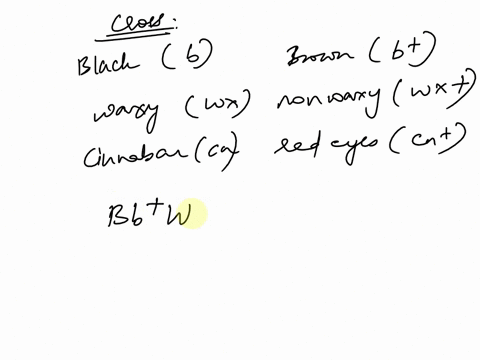 Cross:
Black (b) Brown (b+)
waxy (wx) nonwaxy (wx+)
Cinnabar (cn) red eyes (cn+)
Bb+W